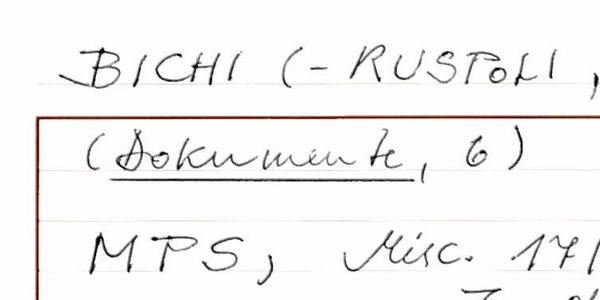 BICHI (-RUSPOLI,
(Dokumente, 6)
MPS, Misc. 171